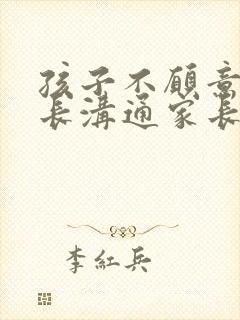 孩子不願意
長溝通家長
李紅兵